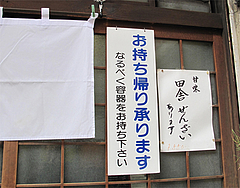 お持ち帰り承ります
なるべく容器をお持ち下さい
甘味
田舎ぜんざい
あります